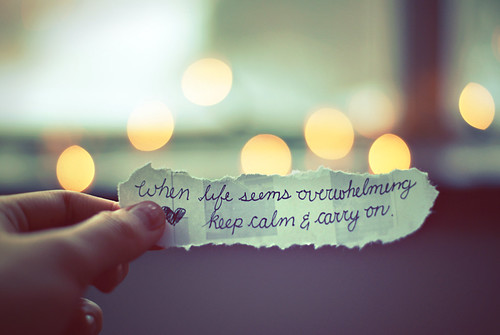 When life seems overwhelming
keep calm & carry on.